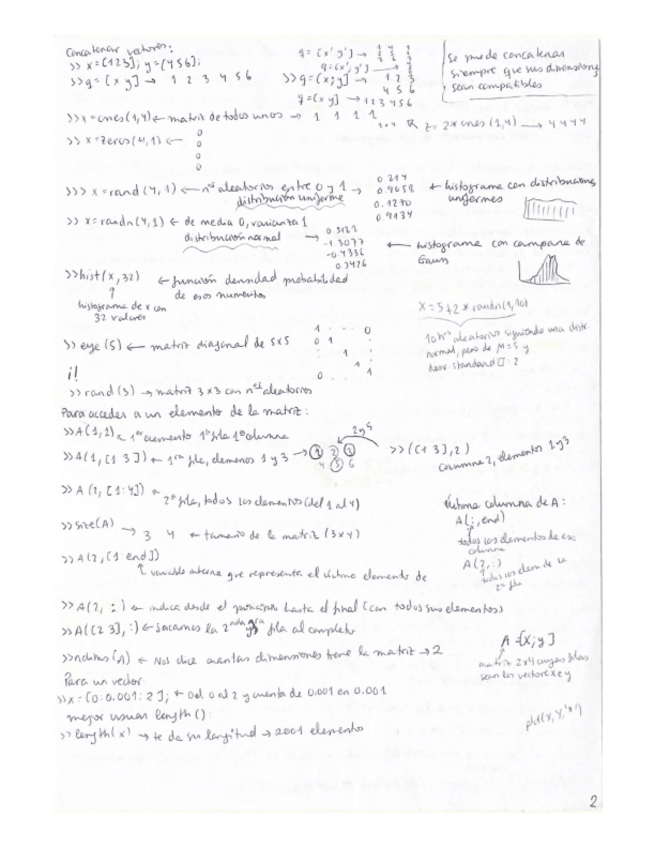 Concatenar vectores:
>> x=[1 2 3]; y=[4 5 6];
>> q=[x y] → 1 2 3 4 5 6
q=[x' y'] →
1 4
2 5
3 6
q=[x'; y'] →
>> q=[x;y] → 1 2 3
4 5 6
q=[x y] → 1 2 3 4 5 6
Se puede concatenar
siempre que sus dimensiones
sean compatibles
=ones(1,4) ← matriz de todos unos → 1 1 1 1
z=2*ones(1,4) → 4 4 4 4
>> x=zeros(4,1) ←
0
0
0
0
>> x=rand(4,1) ← nºs aleatorios entre 0 y 1 →
distribución uniforme
0.9058
0.1270
0.9134
← histograma con distribuciones
uniformes
>> x=randn(4,1) ← de media 0, varianza 1
distribución normal →
-1.3077
-0.4336
0.3426
← histograma con campana de
Gauss
>> hist(x,32) ← función densidad probabilidad
de esos numeros
histograma de x con
32 valores
x=5+2*randn(1,10)
10 nºs aleatorios siguiendo una distr.
normal, pero de M=5 y
desv. standard : 2
>> eye(5) ← matriz diagonal de 5x5
1 . . . 0
0 1 .
. 1 .
. 1
0 . 1
¡!
>> rand(3) → matriz 3x3 con nºs aleatorios
Para acceder a un elemento de la matriz:
>> A(1,1) ← 1er elemento 1ª fila 1ª columna
>> A(1,[1 3]) ← 1ra fila, elemenos 1 y 3 → 1 2 3
4 5 6
2 y 5
>> ([1 3],2)
columna 2, elementos 1 y 3
>> A(2,[1:4]) ←
2ª fila, todos los elementos (del 1 al 4)
>> size(A) → 3 4 ← tamaño de la matriz (3x4)
>> A(2,[1:end])
variable interna que representa el último elemento de
última columna de A:
A(:,end)
todos los elementos de esa
columna
A(2,:)
todos los elem de la
2ª fila
>> A(2,:) ← indica desde el principio hasta el final (con todos sus elementos)
>> A([2 3],:) ← sacamos la 2nda y 3ra fila al completo
>> ndims(A) ← Nos dice cuantas dimensiones tiene la matriz → 2
A=[x;y]
matriz 2x4 cuyas filas
sean los vectores x e y
Para un vector:
>> x=[0:0.001:2]; ← Del 0 al 2 y cuenta de 0.001 en 0.001
mejor usar length():
>> length(x) → te da su longitud → 2001 elemento
plot(x,y,'x')
2